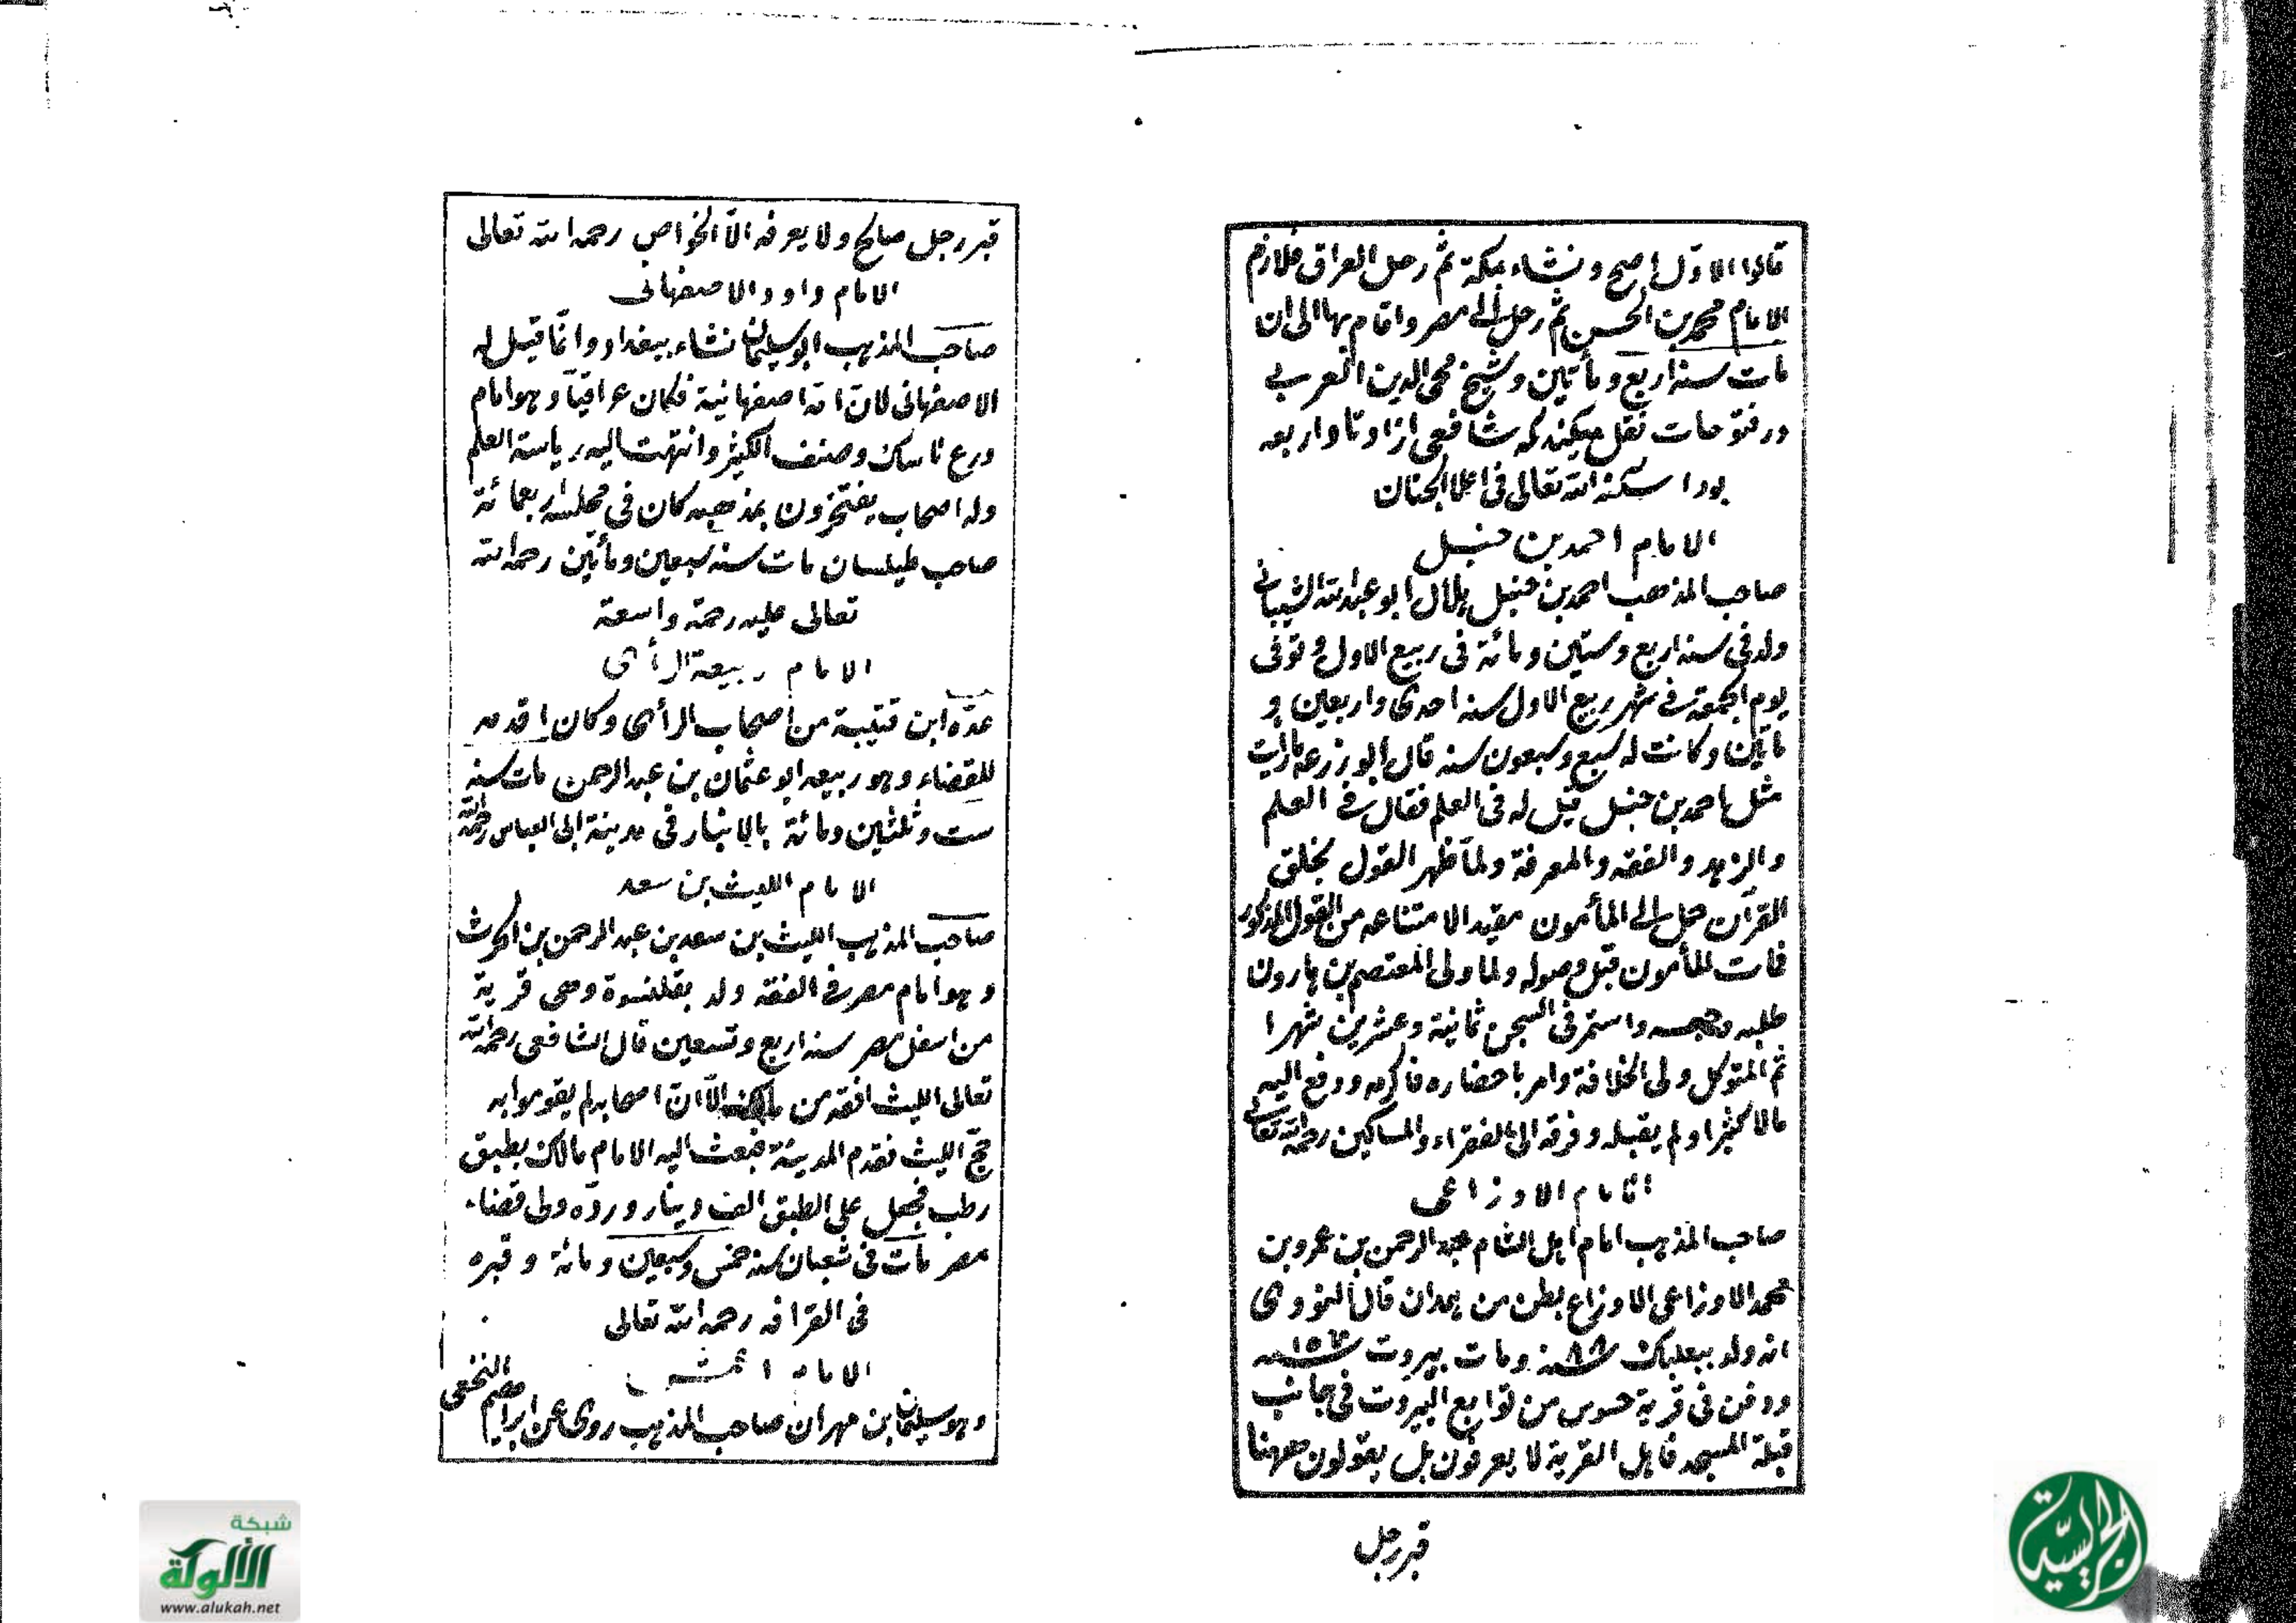 قالوا الاوّل اصح ونشاء بمكة ثم رحل العراق فلازم
الامام محمد بن الحسن ثم رحل الى مصر واقام بها الى ان
مات سنة اربع ومأتين وشيخ محى الدين العربى
در فتوحات نقل ميكند كه شافعى از اوتاد اربعه
بود اسكنه الله تعالى فى اعلا الجنان
الامام احمد بن حنبل
صاحب المذهب احمد بن حنبل بلال ابو عبد الله الشيبانى
ولد فى سنة اربع وستين ومائة فى ربيع الاول و توفى
يوم الجمعة فى شهر ربيع الاول سنة احدى واربعين و
مأتين وكانت له سبع وسبعون سنه قال ابو زرعة ما رايت
مثل احمد بن حنبل قيل له فى العلم فقال فى العلم
والزهد والفقه والمعرفة ولما ظهر القول بخلق
القرآن حمل الى المأمون مقيد الامتناعه من القول المذكور
فمات المأمون قبل وصوله ولما ولى المعتصم بن هارون
طلبه وحبسه واستمر فى السجن ثمانية وعشرين شهرا
ثم المتوكل ولى الخلافة وامر باحضاره فاكرمه ودفع اليه
مالا كثيرا ولم يقبله وفرقه الى الفقراء والمساكين رحمه الله تعالى
الامام الاوزاعى
صاحب المذهب امام اهل الشام عبد الرحمن بن عمرو بن
محمد الاوزاعى الاوزاع بطن من همدان قال النووى
انه ولد ببعلبك سنة ٨٨ ومات ببيروت سنة ١٥٧
ودفن فى قرية حنوس من توابع البيروت فى جانب
قبلة المسجد فاهل القرية لا يعرفون بل يقولون ههنا
قبر رجل
قبر رجل صالح ولا يعرفه الّا الخواص رحمه الله تعالى
الامام داود الاصفهانى
صاحب المذهب ابو سليمان نشاء ببغداد وانّما قيل له
الاصفهانى لانّ امّه اصفهانية فكان عراقيّا وهو امام
ورع ناسك وصنف الكثير وانتهت اليه رياسة العلم
وله اصحاب يفتخرون بمذهبه كان فى مجلسه اربعمائة
صاحب طيلسان مات سنه سبعين ومأتين رحمه الله
تعالى عليه رحمة واسعة
الامام ربيعة الرأى
عدّه ابن قتيبة من اصحاب الرأى وكان اقدمه
للقضاء وهو ربيعه ابو عثمان بن عبد الرحمن مات سنه
ست وثلثين ومائة بالانبار فى مدينة ابى العباس رحمه الله
الامام الليث بن سعد
صاحب المذهب الليث بن سعد بن عبد الرحمن بن الحرث
وهو امام مصر فى الفقه ولد بقلنسوة وهى قرية
من اسفل مصر سنة اربع وتسعين قال الشافعى رحمه الله
تعالى الليث افقه من مالك الّا انّ اصحابه لم يقوموا به
حجّ الليث فقدم المدينة فبعث اليه الامام مالك بطبق
رطب فجعل على الطبق الف دينار و ردّه ولى قضاء
مصر مات فى شعبان سنة خمس وسبعين ومائة و قبره
فى القرافه رحمه الله تعالى
الامام اعمش
وهو سليمان بن مهران صاحب المذهب روى عن ابراهيم النخعى
شبكة
الألوكة
www.alukah.net